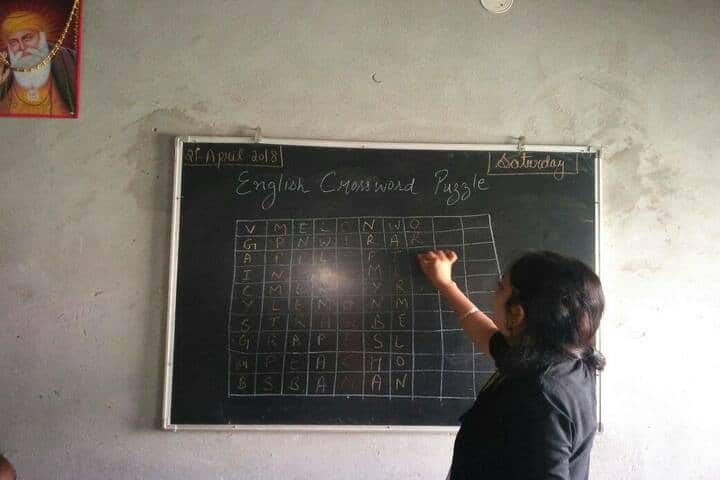 21-April-2018
Saturday
English Crossword Puzzle
V M E L O N W O
G P N W I R A K
A I I L P T
I N M
C M E Y R
V L E N O N M
S T R B E
G R A P E S L
M P E A C H O
B S B A N A N